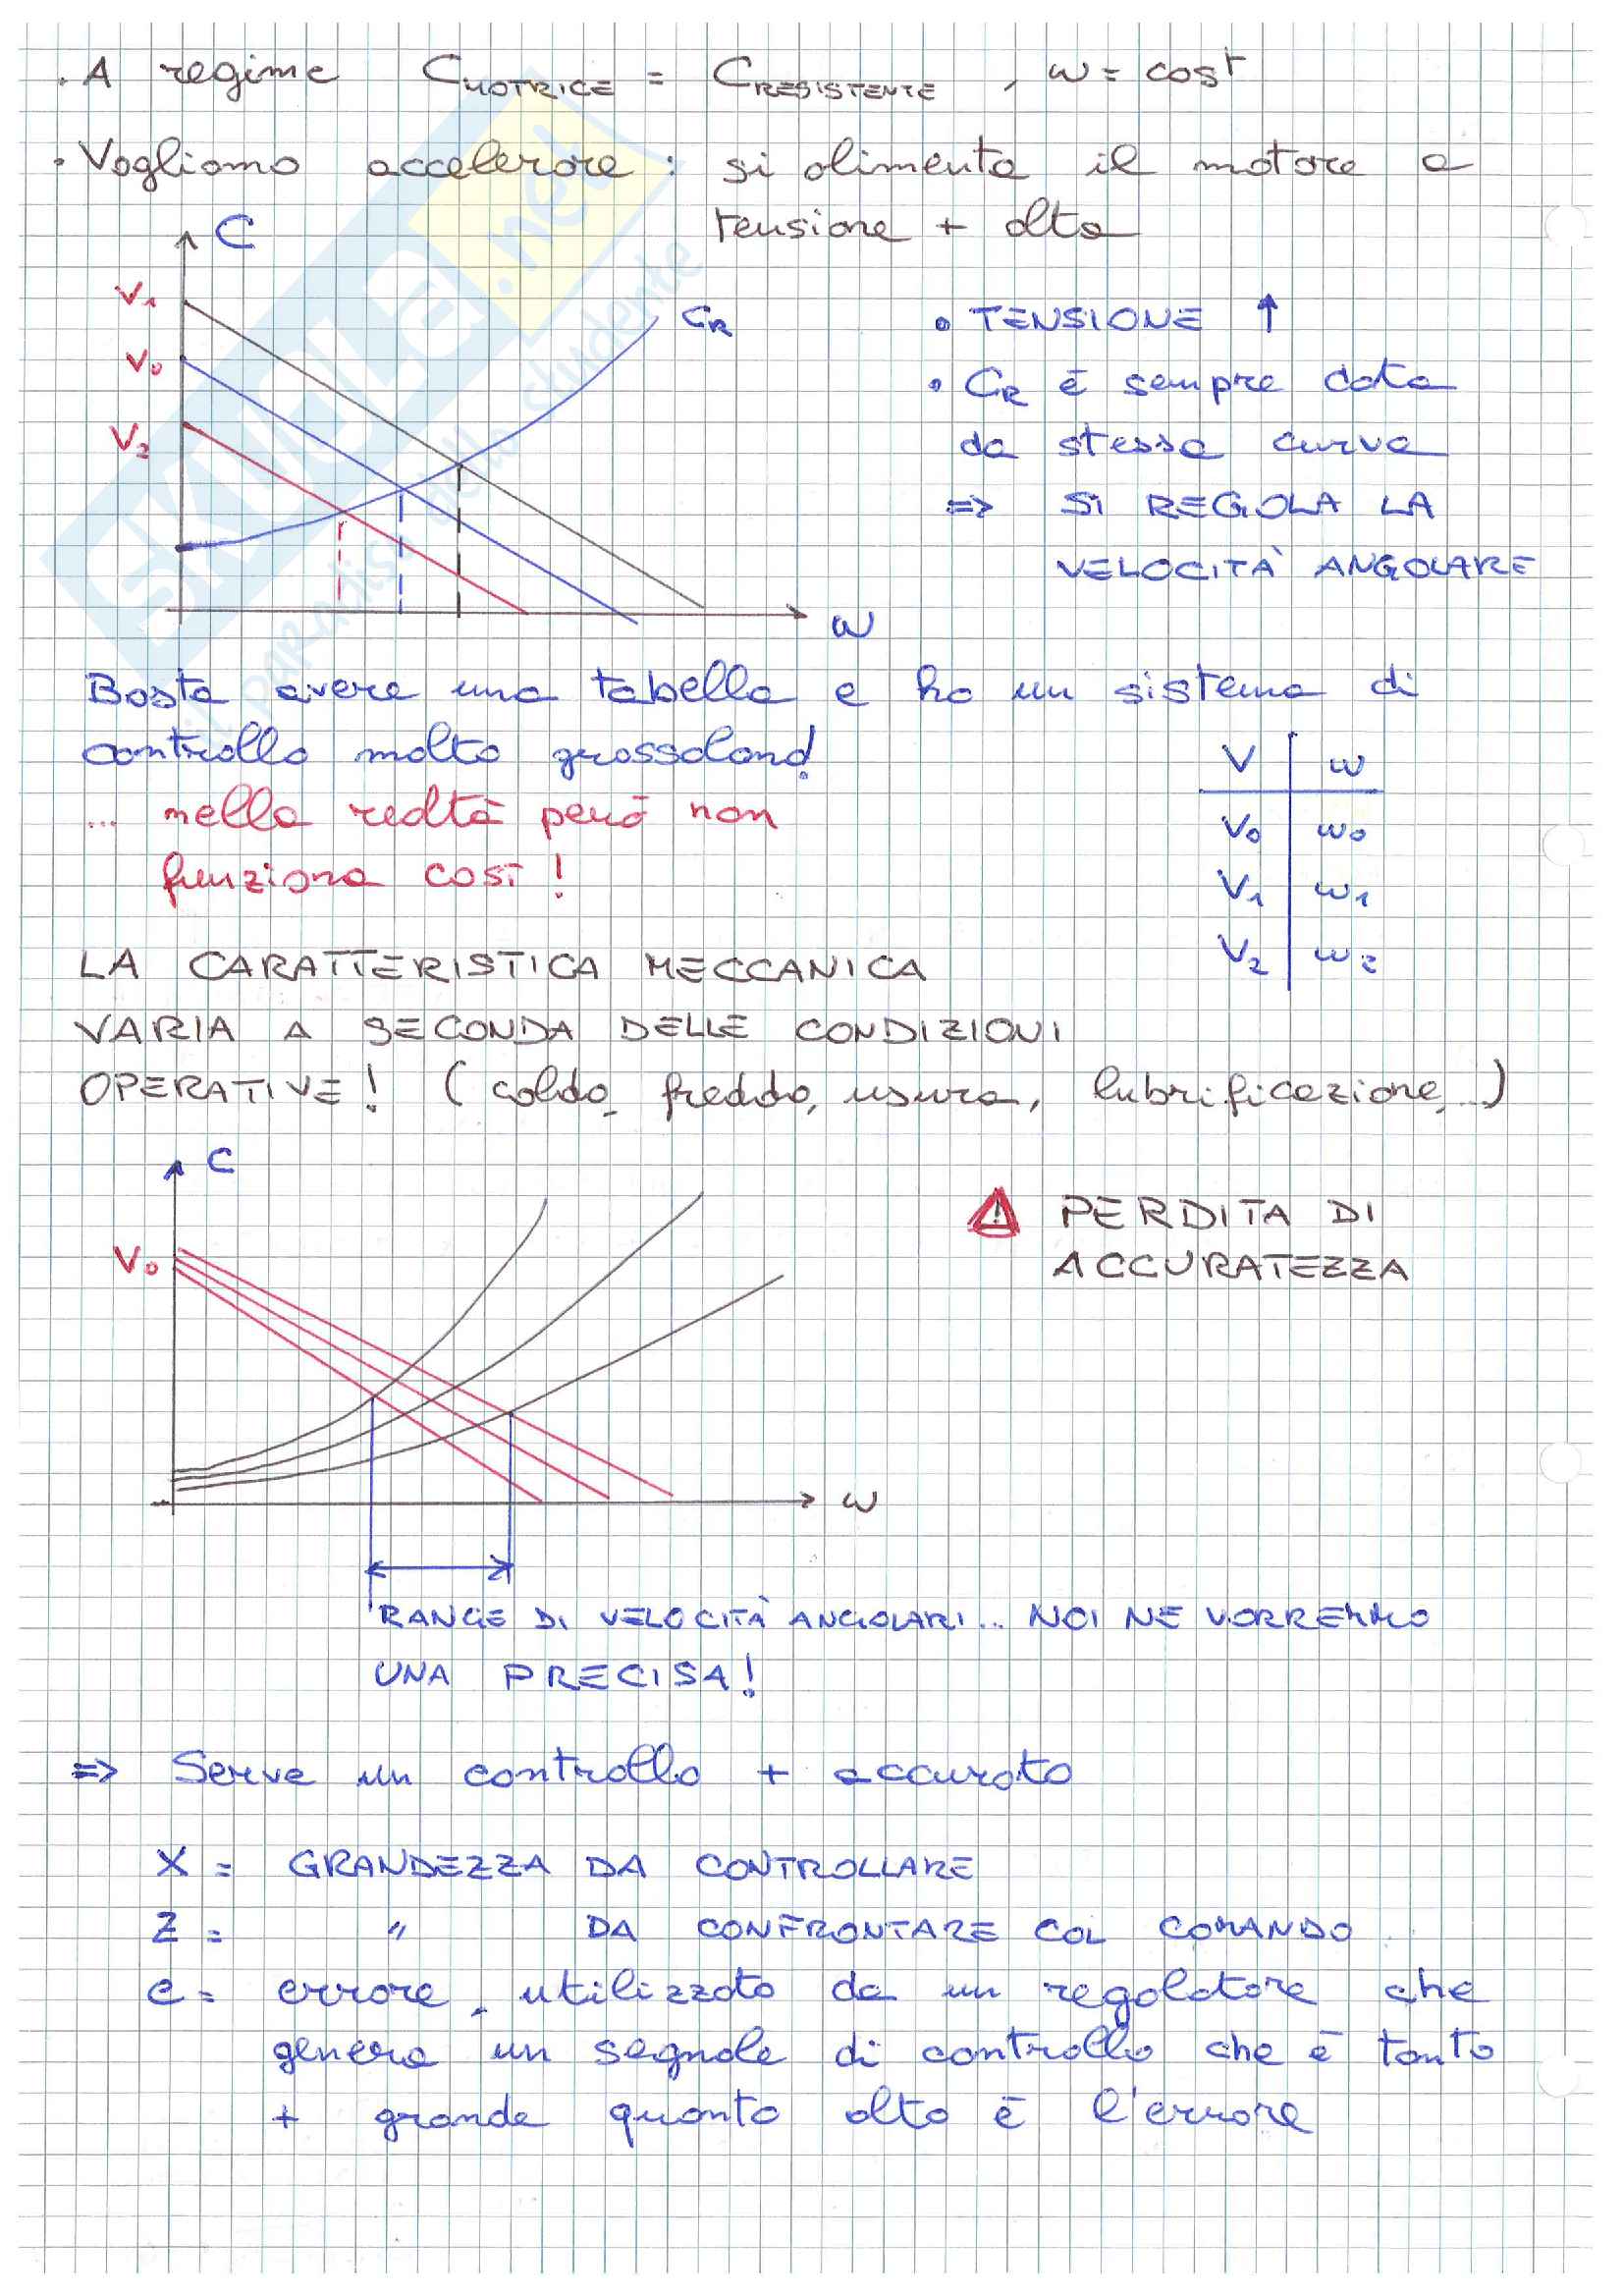 . A regime C_MOTRICE = C_RESISTENTE , ω = cost
. Vogliamo accelerare : si alimenta il motore a
tensione + alta
C
V₁
V₀
V₂
C_R
ω
• TENSIONE ↑
• C_R è sempre data
da stessa curva
=> SI REGOLA LA
VELOCITÀ ANGOLARE
Basta avere una tabella e ho un sistema di
controllo molto grossolano!
... nella realtà però non
funziona così !
V ω
V₀ ω₀
V₁ ω₁
V₂ ω₂
LA CARATTERISTICA MECCANICA
VARIA A SECONDA DELLE CONDIZIONI
OPERATIVE! (caldo, freddo, usura, lubrificazione,..)
C
V₀
ω
! PERDITA DI
ACCURATEZZA
RANGE DI VELOCITÀ ANGOLARI... NOI NE VORREMMO
UNA PRECISA!
=> Serve un controllo + accurato
X = GRANDEZZA DA CONTROLLARE
Z = " DA CONFRONTARE COL COMANDO
e = errore, utilizzato da un regolatore che
genera un segnale di controllo che è tanto
+ grande quanto alto è l'errore
SKUOLA.net
il paradiso dello studente